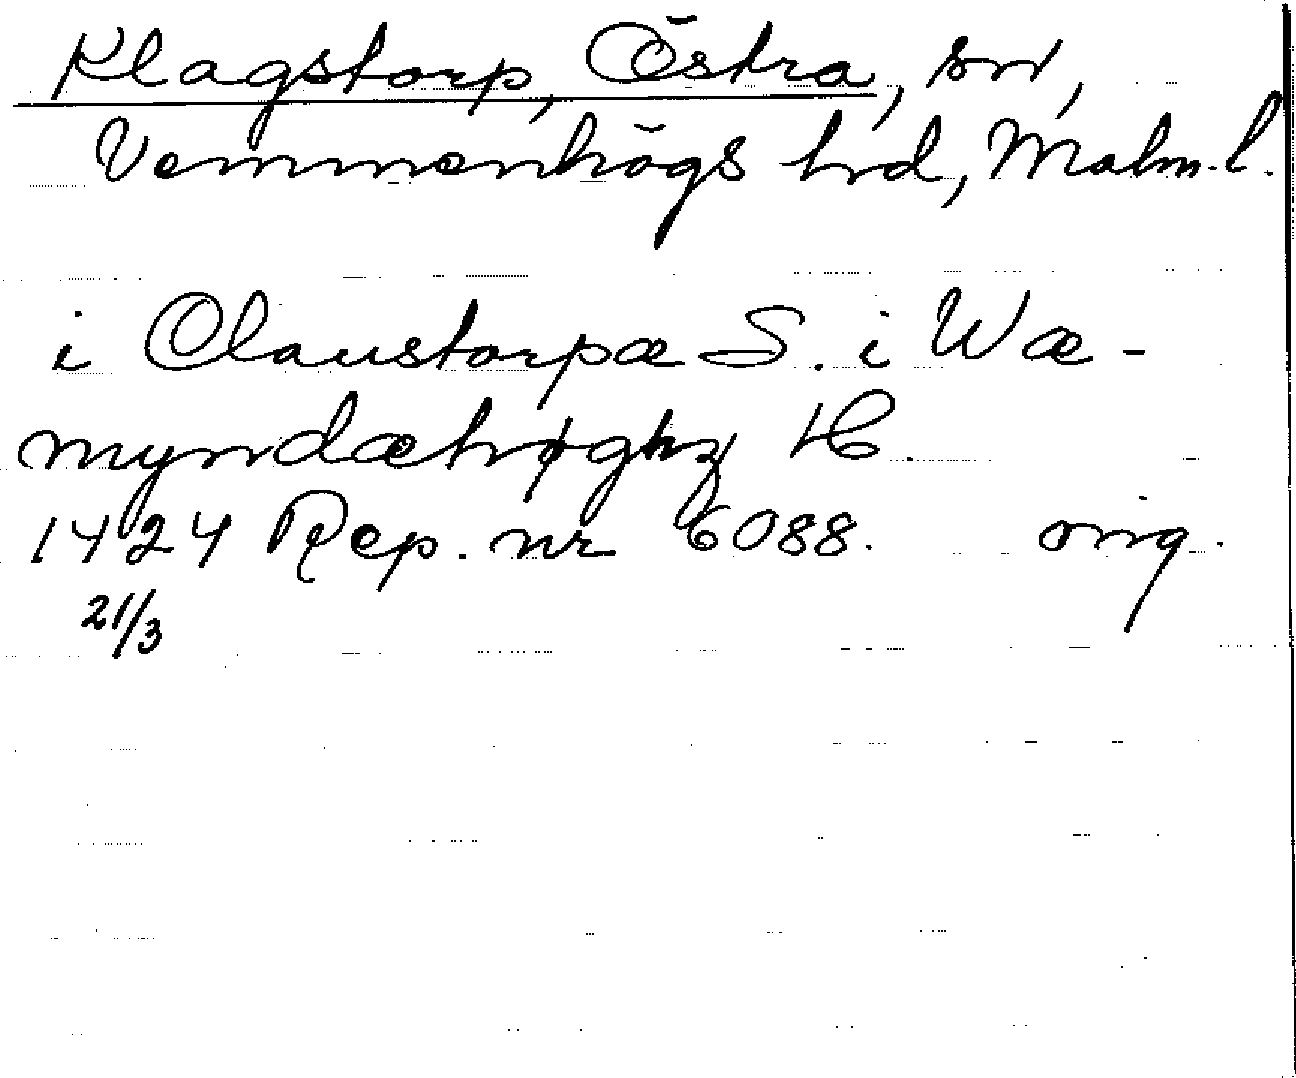 Klagstorp, Östra, sn,
Vemmenhögs hrd, Malm. l.
i Claustorpæ S. i Wæ-
myndæhøghz H.
1424 Rep. nr 6088. orig.
21/3